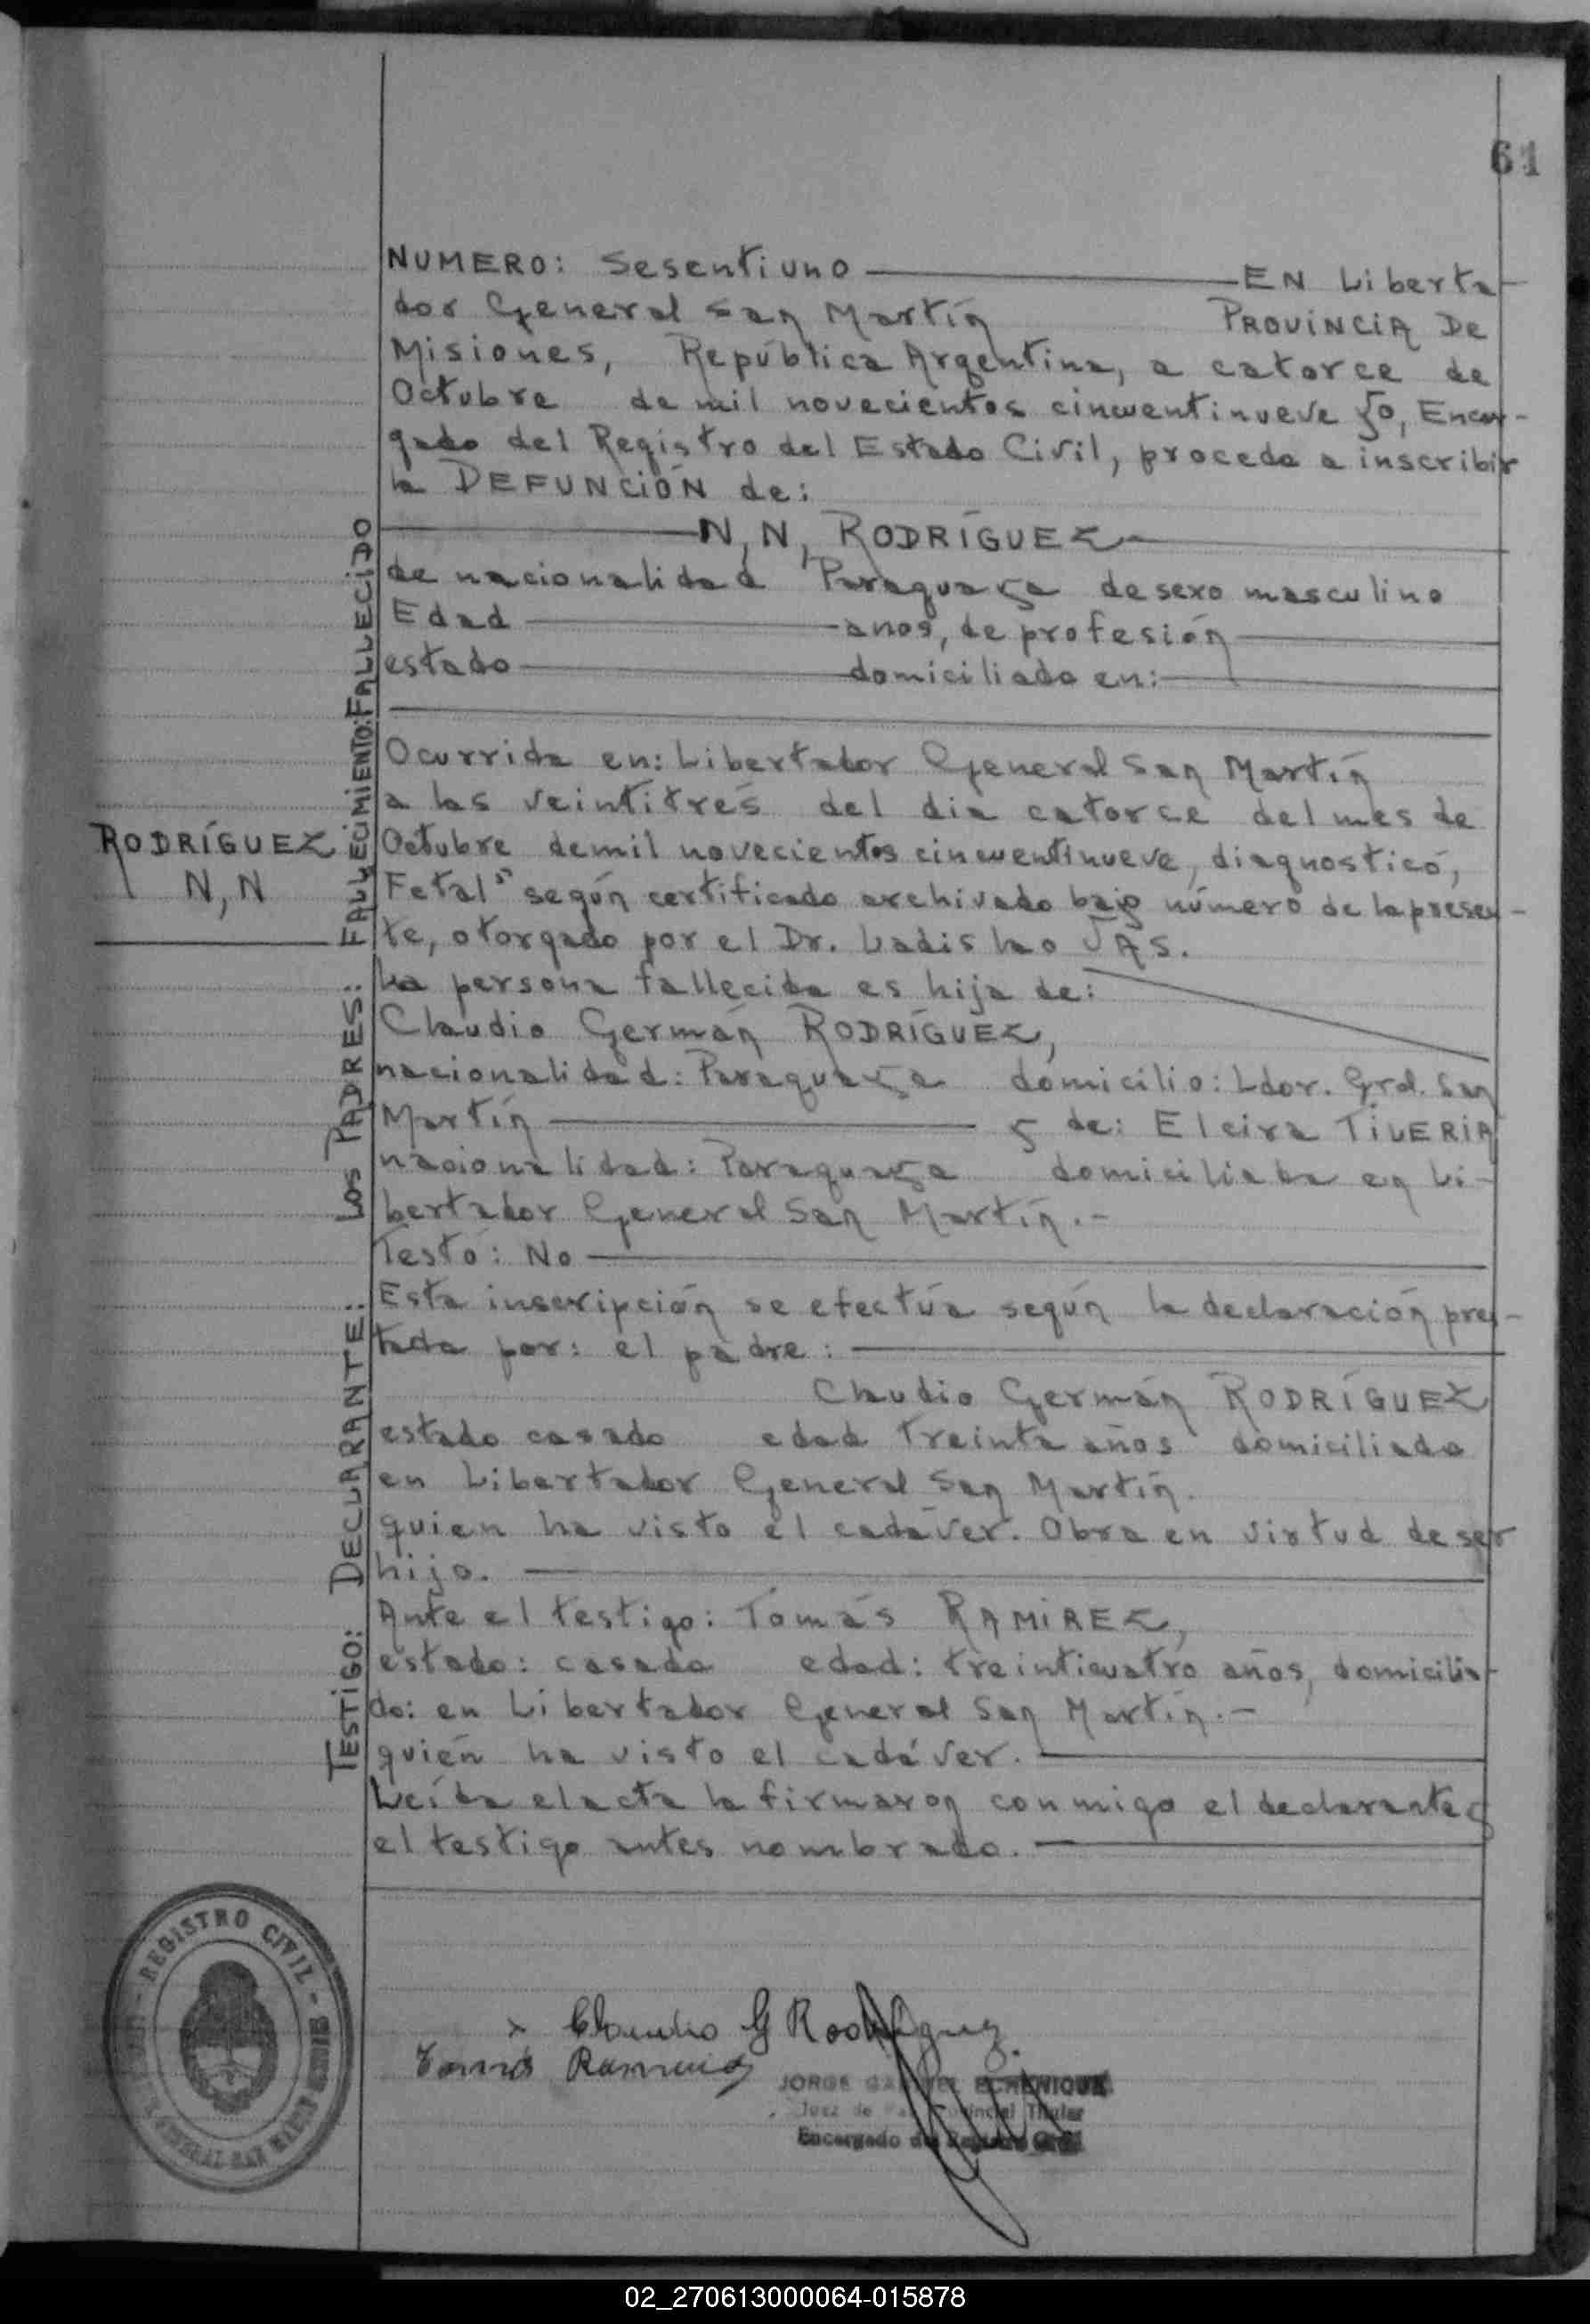 61
NUMERO: Sesentiuno EN Liberta
dor General San Martín PROVINCIA De
Misiones, República Argentina, a catorce de
Octubre de mil novecientos cincuentinueve Yo, Encar-
gado del Registro del Estado Civil, procedo a inscribir
la DEFUNCIÓN de:
N, N, RODRÍGUEZ
de nacionalidad Paraguaya de sexo masculino
Edad anos, de profesión
estado domiciliado en:
Ocurrida en: Libertador General San Martín
a las veintitrés del dia catorce del mes de
Octubre demil novecientos cincuentinueve, diagnosticó,
Fetal" según certificado archivado bajo número de la presen-
te, otorgado por el Dr. Ladislao JAS.
La persona fallecida es hija de:
Claudio Germán RODRÍGUEZ,
nacionalidad: Paraguaya domicilio: Ldor. Gral. San
Martín y de: Elcira TILERIA
nacionalidad: Paraguaya domiciliada en Li-
bertador General San Martín.-
Testó: No
Esta inscripción se efectúa según la declaración pres-
tada por: el padre:
Claudio Germán RODRÍGUEZ
estado casado edad Treinta años domiciliado
en Libertador General San Martín.
quien ha visto el cadáver. Obra en virtud de ser
hijo.
Ante el testigo: Tomás RAMIREZ,
estado: casado edad: treinticuatro años, domicilia-
do: en Libertador General San Martín.-
quién ha visto el cadáver.
Leída el acta la firmaron conmigo el declarante y
el testigo antes nombrado.
FALLECIDO
FALLECIMIENTO:
LOS PADRES:
DECLARANTE:
TESTIGO:
RODRÍGUEZ
N, N
REGISTRO CIVIL
GENERAL SAN MARTIN
x Claudio G Rodríguez.
Tomás Ramirez
JORGE GABRIEL ECHENIQUE
Juez de Paz Provincial Titular
Encargado del Registro Civil
02_270613000064-015878